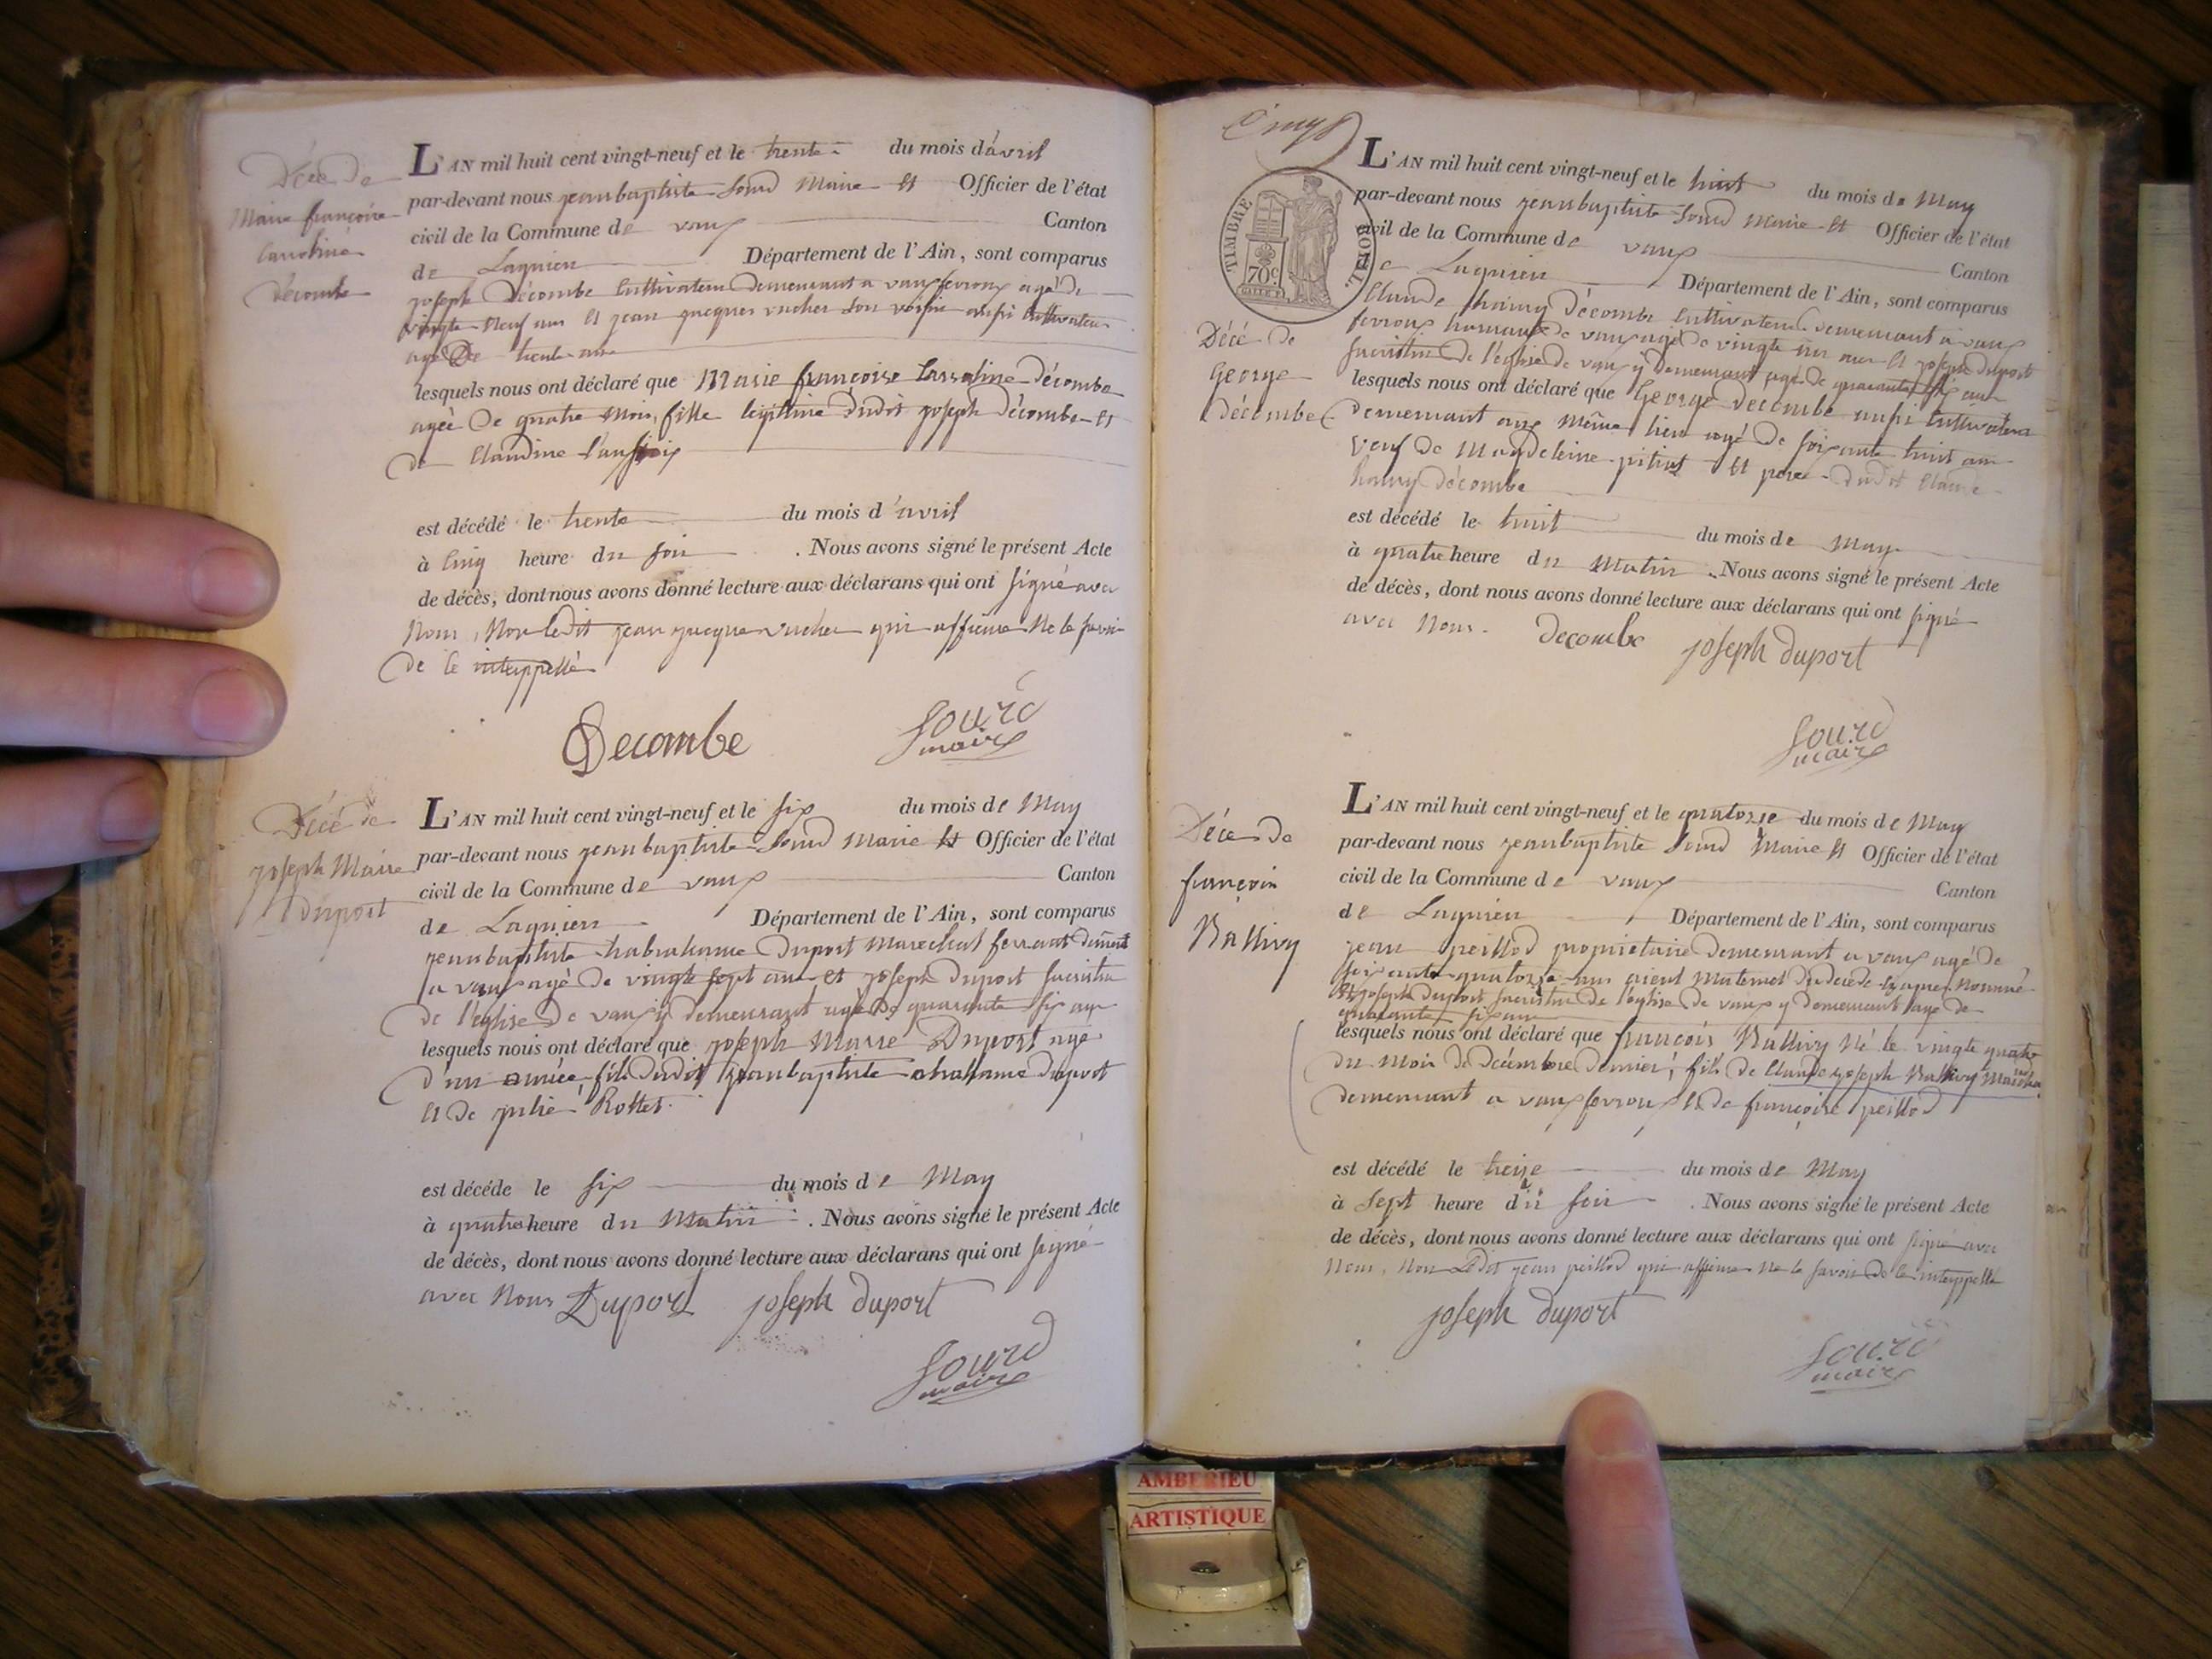 Décé de
Marie françoise
Carroline
décombe
L'AN mil huit cent vingt-neuf et le trente du mois d'avril
par-devant nous jeanbaptiste Sourd Maire et Officier de l'état
civil de la Commune de vaux Canton
de Lagnieu Département de l'Ain, sont comparus
joseph Décombe Cultivateur demeurant a vaux fevroux agé de
vingte neuf ans et jean jacques vucher son voisin aussi Cultivateur
agé De trente ans
lesquels nous ont déclaré que Marie françoise Carroline décombe
agée De quatre Mois, fille legitime dudit joseph décombe et
de Claudine
est décédé le trente du mois d'avril
à Cinq heure du soir . Nous avons signé le présent Acte
de décès, dont nous avons donné lecture aux déclarans qui ont signé avec
Nous, Non ledit jean jacque vucher qui affirme Ne le savoir
de ce interppellé
Decombe Sourd
maire
Décé de
joseph Marie
Duport
L'AN mil huit cent vingt-neuf et le six du mois de May
par-devant nous jeanbaptiste Sourd Marie et Officier de l'état
civil de la Commune de vaux Canton
de Lagnieu Département de l'Ain, sont comparus
jeanbaptiste habrahame Duport Marechal ferrant demeurt
a vaux agé de vingt sept ans et joseph duport sacristin
de l'eglise de vaux y demeurant agé de quarante six ans
lesquels nous ont déclaré que joseph Marie Duport agé
d'un année, fils dudit jeanbaptiste abrahame duport
et de julie Rottet
est décédé le six du mois de May
à quatre heure du Matin . Nous avons signé le présent Acte
de décès, dont nous avons donné lecture aux déclarans qui ont signé
avec Nous Duport joseph duport
Sourd
maire
TIMBRE ROYAL.
70 c.
L'AN mil huit cent vingt-neuf et le huit du mois de May
par-devant nous jeanbaptiste Sourd Maire et Officier de l'état
civil de la Commune de vaux Canton
de Lagnieu Département de l'Ain, sont comparus
Claude hanry décombe Cultivateur demeurant a vaux
fevroux hamaux de vaux agé de vingte un ans et joseph duport
sacristin de l'eglise de vaux y demeurant agé de quarante six ans
Décé de
George
décombe
lesquels nous ont déclaré que George decombe aussi Cultivateur
demeurant aux même lieu agé de soixante huit ans
veuf de Magdeleine pitiot et pere dudit Claude
hanry décombe
est décédé le huit du mois de May
à quatre heure du Matin . Nous avons signé le présent Acte
de décès, dont nous avons donné lecture aux déclarans qui ont signé
avec Nous. Decombe joseph duport
Sourd
maire
Décé de
françois
Ballivy
L'AN mil huit cent vingt-neuf et le quatorze du mois de May
par-devant nous jeanbaptiste Sourd Maire et Officier de l'état
civil de la Commune de vaux Canton
de Lagnieu Département de l'Ain, sont comparus
jean peillod propriétaire demeurant a vaux agé de
soixante quatorze ans aieul maternel du décédé cy apres nommé
et joseph duport sacristin de l'eglise de vaux y demeurant agé de
quarante six ans
lesquels nous ont déclaré que françois Ballivy Né le vingte quatre
du Mois de décembre dernier, fils de Claude joseph Ballivy
demeurant a vaux fevroux et de françoise peillod
est décédé le treize du mois de May
à Sept heure du soir . Nous avons signé le présent Acte
de décès, dont nous avons donné lecture aux déclarans qui ont signé avec
Nous, Non Ledit jean peillod qui affirme Ne le savoir de ce interppellé
joseph duport
Sourd
maire
AMBERIEU
ARTISTIQUE